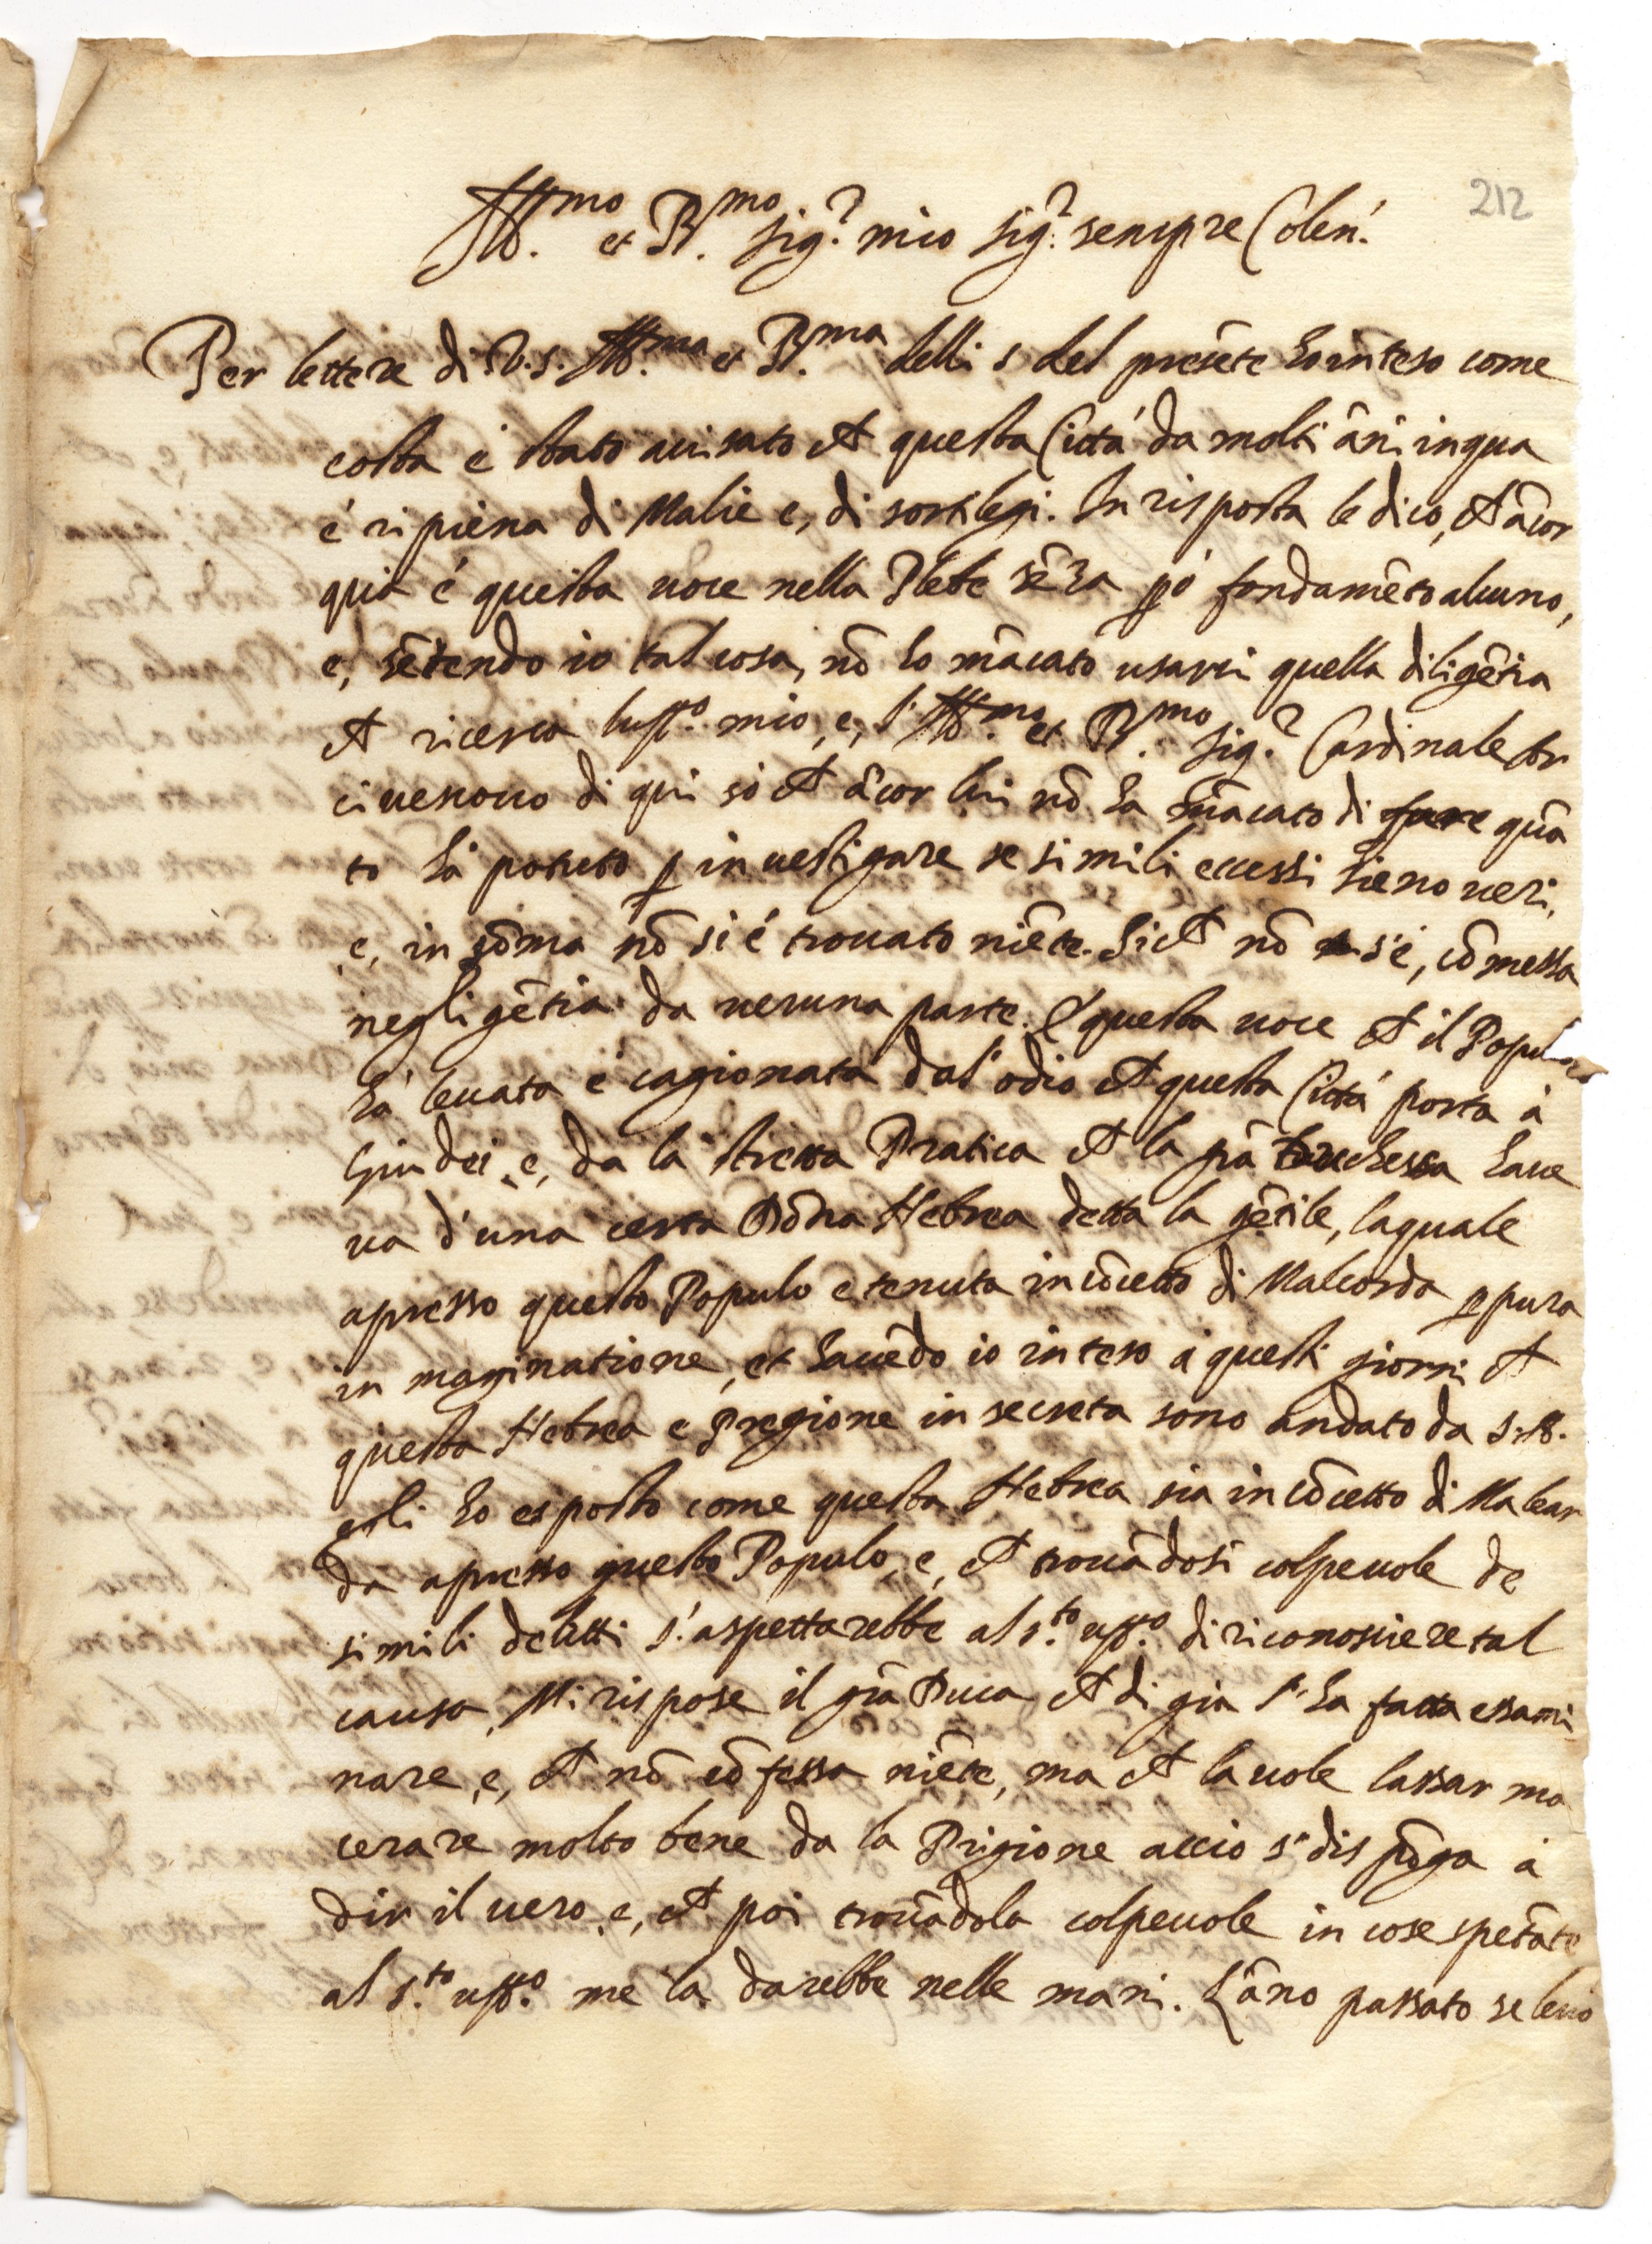 212
Ill.mo et R.mo Sig.r mio Sig.r sempre Colen.
Per lettere di V.S. Ill.ma et R.ma delli 5 del presēte ho inteso come
costa è stato auisato che questa Città da molti āni in qua
é ripiena di Malie e, di sortilegi. In risposta le dico, che ācor
qui é questa uoce nella Plebe sēza però fondamēto alcuno,
e, sētendo io tal cosa, nō ho mācato usarui quella diligētia
che ricerca l'uff.o mio, e, l'Ill.mo et R.mo Sig.r Cardinale Ar
ciuescouo di qui so che ācor lui nō ha mācato di fare quā
to há potuto p inuestigare se simili eccessi sieno ueri,
e, in sōma nō si é trouato niēte. Si che nō s'é, cōmessa
negligētia da ueruna parte. E questa uoce che il Popul
há leuata é cagionata dal'odio che questa Città porta á
Giudei, e, da la stretta Pratica che la grā Duchessa haue
ua d'una certa Dōna Hebrea detta la gētile, laquale
apresso questo Populo e tenuta in cōcetto di Maleorda p pura
in maginatione, et hauēdo io inteso á questi giorni che
questa Hebrea e Pregione in secreta sono andato da S.A.
e gli ho esposto come questa Hebrea sia in cōcetto di Malear
da apresso questo Populo, e, che trouādosi colpeuole de
simili delitti s'aspettarebbe al s.to uff.o di riconosciere tal
causa, Mi rispose il grā Duca che di gia l'ha fatta essami
nare, e, che nō cōfessa niēte, ma che la uole lassar ma
cerare molto bene da la Prigione accio si dispōga á
dir il uero, e, che poi trouādola colpeuole in cose spetāte
al s.to uff.o me la darebbe nelle mani. L'āno passato se leuò